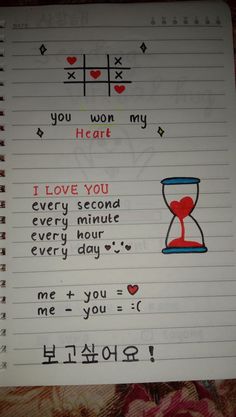 you won my
Heart
I LOVE YOU
every second
every minute
every hour
every day
me + you = ♥
me - you = :(
보고싶어요!